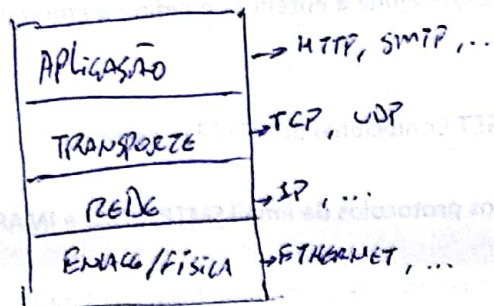 APLICASÃO → HTTP, SMTP, ...
TRANSPORTE → TCP, UDP
REDE → IP, ...
ENLACE/FÍSICA → ETHERNET, ...